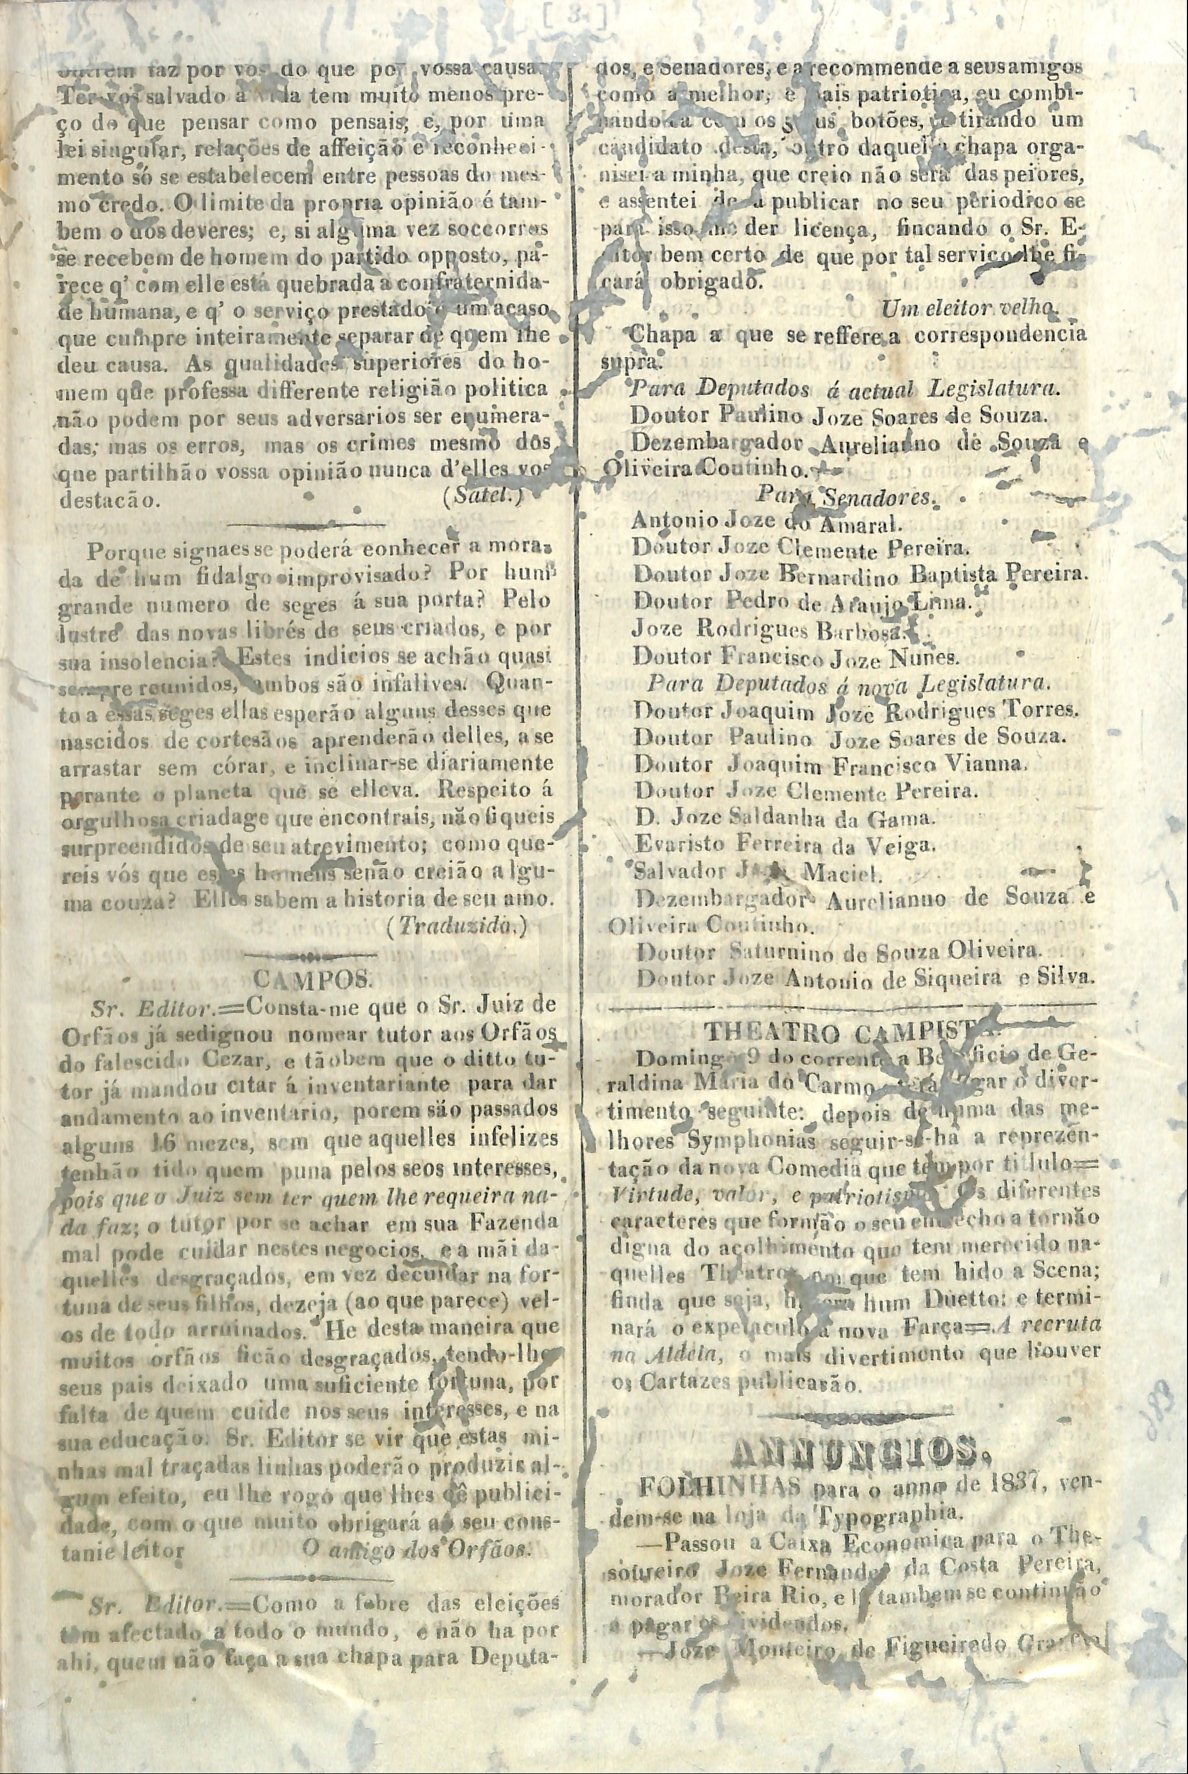 [ 3 ]
faz por vos do que por vossa causa.
Ter-vos salvado a vida tem muito menos pre-
ço do que pensar como pensais; e, por uma
lei singular, relações de affeição e reconheci-
mento só se estabelecem entre pessoas do mes-
mo credo. O limite da propria opinião é tam-
bem o dos deveres; e, si alguma vez soccorros
se recebem de homem do partido opposto, pa-
rece q' com elle está quebrada a confraternida-
de humana, e q' o serviço prestado é um acaso
que cumpre inteiramente separar de quem lhe
deu causa. As qualidades superiores do ho-
mem que professa differente religião politica
não podem por seus adversarios ser enumera-
das; mas os erros, mas os crimes mesmo dos
que partilhão vossa opinião nunca d'elles vos
destacão. (Satel.)
Porque signaes se poderá conhecer a mora-
da de hum fidalgo improvisado? Por hum
grande numero de seges á sua porta? Pelo
lustre das novas librés de seus criados, e por
sua insolencia? Estes indicios se achão quasi
sempre reunidos, ambos são infalives. Quan-
to a essas seges ellas esperão alguns desses que
nascidos de cortesãos aprenderão delles, a se
arrastar sem córar, e inclinar-se diariamente
perante o planeta que se elleva. Respeito á
orgulhosa criadage que encontrais, não fiqueis
surpreendidos de seu atrevimento; como que-
reis vós que estes homens senão creião algu-
ma couza? Elles sabem a historia de seu amo.
(Traduzido.)
CAMPOS.
Sr. Editor.=Consta-me que o Sr. Juiz de
Orfãos já sedignou nomear tutor aos Orfãos
do falescido Cezar, e tãobem que o ditto tu-
tor já mandou citar á inventariante para dar
andamento ao inventario, porem são passados
alguns 16 mezes, sem que aquelles infelizes
tenhão tido quem puna pelos seos interesses,
pois que o Juiz sem ter quem lhe requeira na-
da faz; o tutor por se achar em sua Fazenda
mal pode cuidar nestes negocios, e a mãi da-
quelles desgraçados, em vez decuidar na for-
tuna de seus filhos, dezeja (ao que parece) vel-
os de todo arruinados. He desta maneira que
muitos orfãos ficão desgraçados, tendo-lhe
seus pais deixado uma suficiente fortuna, por
falta de quem cuide nos seus interesses, e na
sua educação. Sr. Editor se vir que estas mi-
nhas mal traçadas linhas poderão produzir al-
gum efeito, eu lhe rogo que lhes dê publici-
dade, com o que muito obrigará ao seu cons-
tante leitor O amigo dos Orfãos.
Sr. Editor.=Como a febre das eleições
tem afectado a todo o mundo, e não ha por
ahi, quem não faça a sua chapa para Deputa-
dos, e Senadores, e a recommende a seus amigos
como a melhor, e mais patriotica, eu combi-
nando-a com os seus botões, e tirando um
candidato desta, outro daquella chapa orga-
nisei a minha, que creio não será das peiores,
e assentei de a publicar no seu periodico se
para isso me der licença, fincando o Sr. E-
ditor bem certo de que por tal serviço lhe fi-
cará obrigado.
Um eleitor velho.
Chapa a que se reffere a correspondencia
supra.
Para Deputados á actual Legislatura.
Doutor Paulino Joze Soares de Souza.
Dezembargador Aurelianno de Souza e
Oliveira Coutinho.
Para Senadores.
Antonio Joze do Amaral.
Doutor Joze Clemente Pereira.
Doutor Joze Bernardino Baptista Pereira.
Doutor Pedro de Araujo Lima.
Joze Rodrigues Barbosa.
Doutor Francisco Joze Nunes.
Para Deputados á nova Legislatura.
Doutor Joaquim Joze Rodrigues Torres.
Doutor Paulino Joze Soares de Souza.
Doutor Joaquim Francisco Vianna.
Doutor Joze Clemente Pereira.
D. Joze Saldanha da Gama.
Evaristo Ferreira da Veiga.
Salvador Maciel.
Dezembargador Aurelianno de Souza e
Oliveira Coutinho.
Doutor Saturnino de Souza Oliveira.
Doutor Joze Antonio de Siqueira e Silva.
THEATRO CAMPISTA.
Domingo 9 do corrente a Beneficio de Ge-
raldina Maria do Carmo terá lugar o diver-
timento seguinte: depois de huma das me-
lhores Symphonias seguir-se-ha a reprezen-
tação da nova Comedia que tem por titlulo=
Virtude, valor, e patriotismo. Os diferentes
caracteres que formão o seu enrecho a tornão
digna do acolhimento que tem merecido na-
quelles Theatros em que tem hido a Scena;
finda que seja, haverá hum Duetto: e termi-
nará o expetaculo a nova Farça=A recruta
na Aldeia, o mais divertimento que houver
os Cartazes publicarão.
ANNUNCIOS.
FOLHINHAS para o anno de 1837, ven-
dem-se na loja da Typographia.
—Passou a Caixa Economica para o The-
soureiro Joze Fernandes da Costa Pereira,
morador Beira Rio, e lá tambem se continuão
a pagar os dividendos.
—Joze Monteiro de Figueiredo